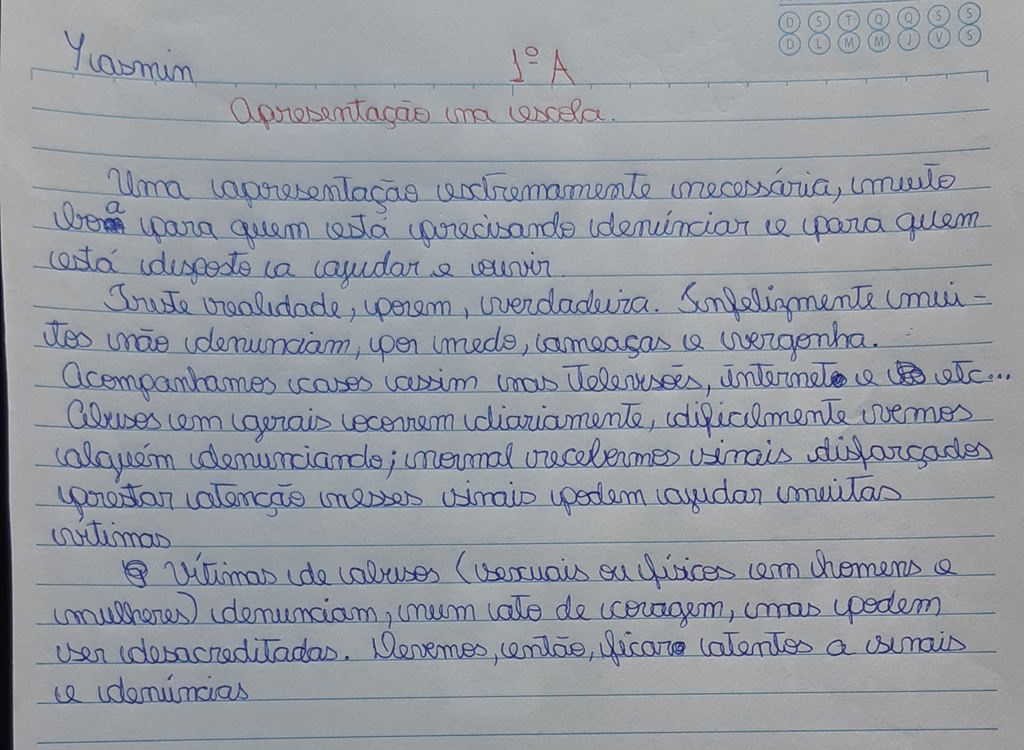 D S T Q Q S S
D L M M J V S
Yiasmin 1º A
Apresentação na escola.
Uma apresentação extremamente necessária, muito
boa para quem está precisando denúnciar e para quem
está disposto a ajudar e ouvir.
Triste realidade, porem, verdadeira. Infelizmente mui-
tos não denunciam, por medo, ameaças e vergonha.
Acompanhamos casos assim nas Televisões, internet e etc...
Abusos em gerais ocorrem diariamente, dificilmente vemos
alguém denunciando; normal recebermos sinais disfarçados
prestar atenção nesses sinais podem ajudar muitas
vítimas
Vítimas de abusos (sexuais ou físicos em homens e
mulheres) denunciam, num ato de coragem, mas podem
ser desacreditadas. Devemos, então, ficar atentos a sinais
e denúncias